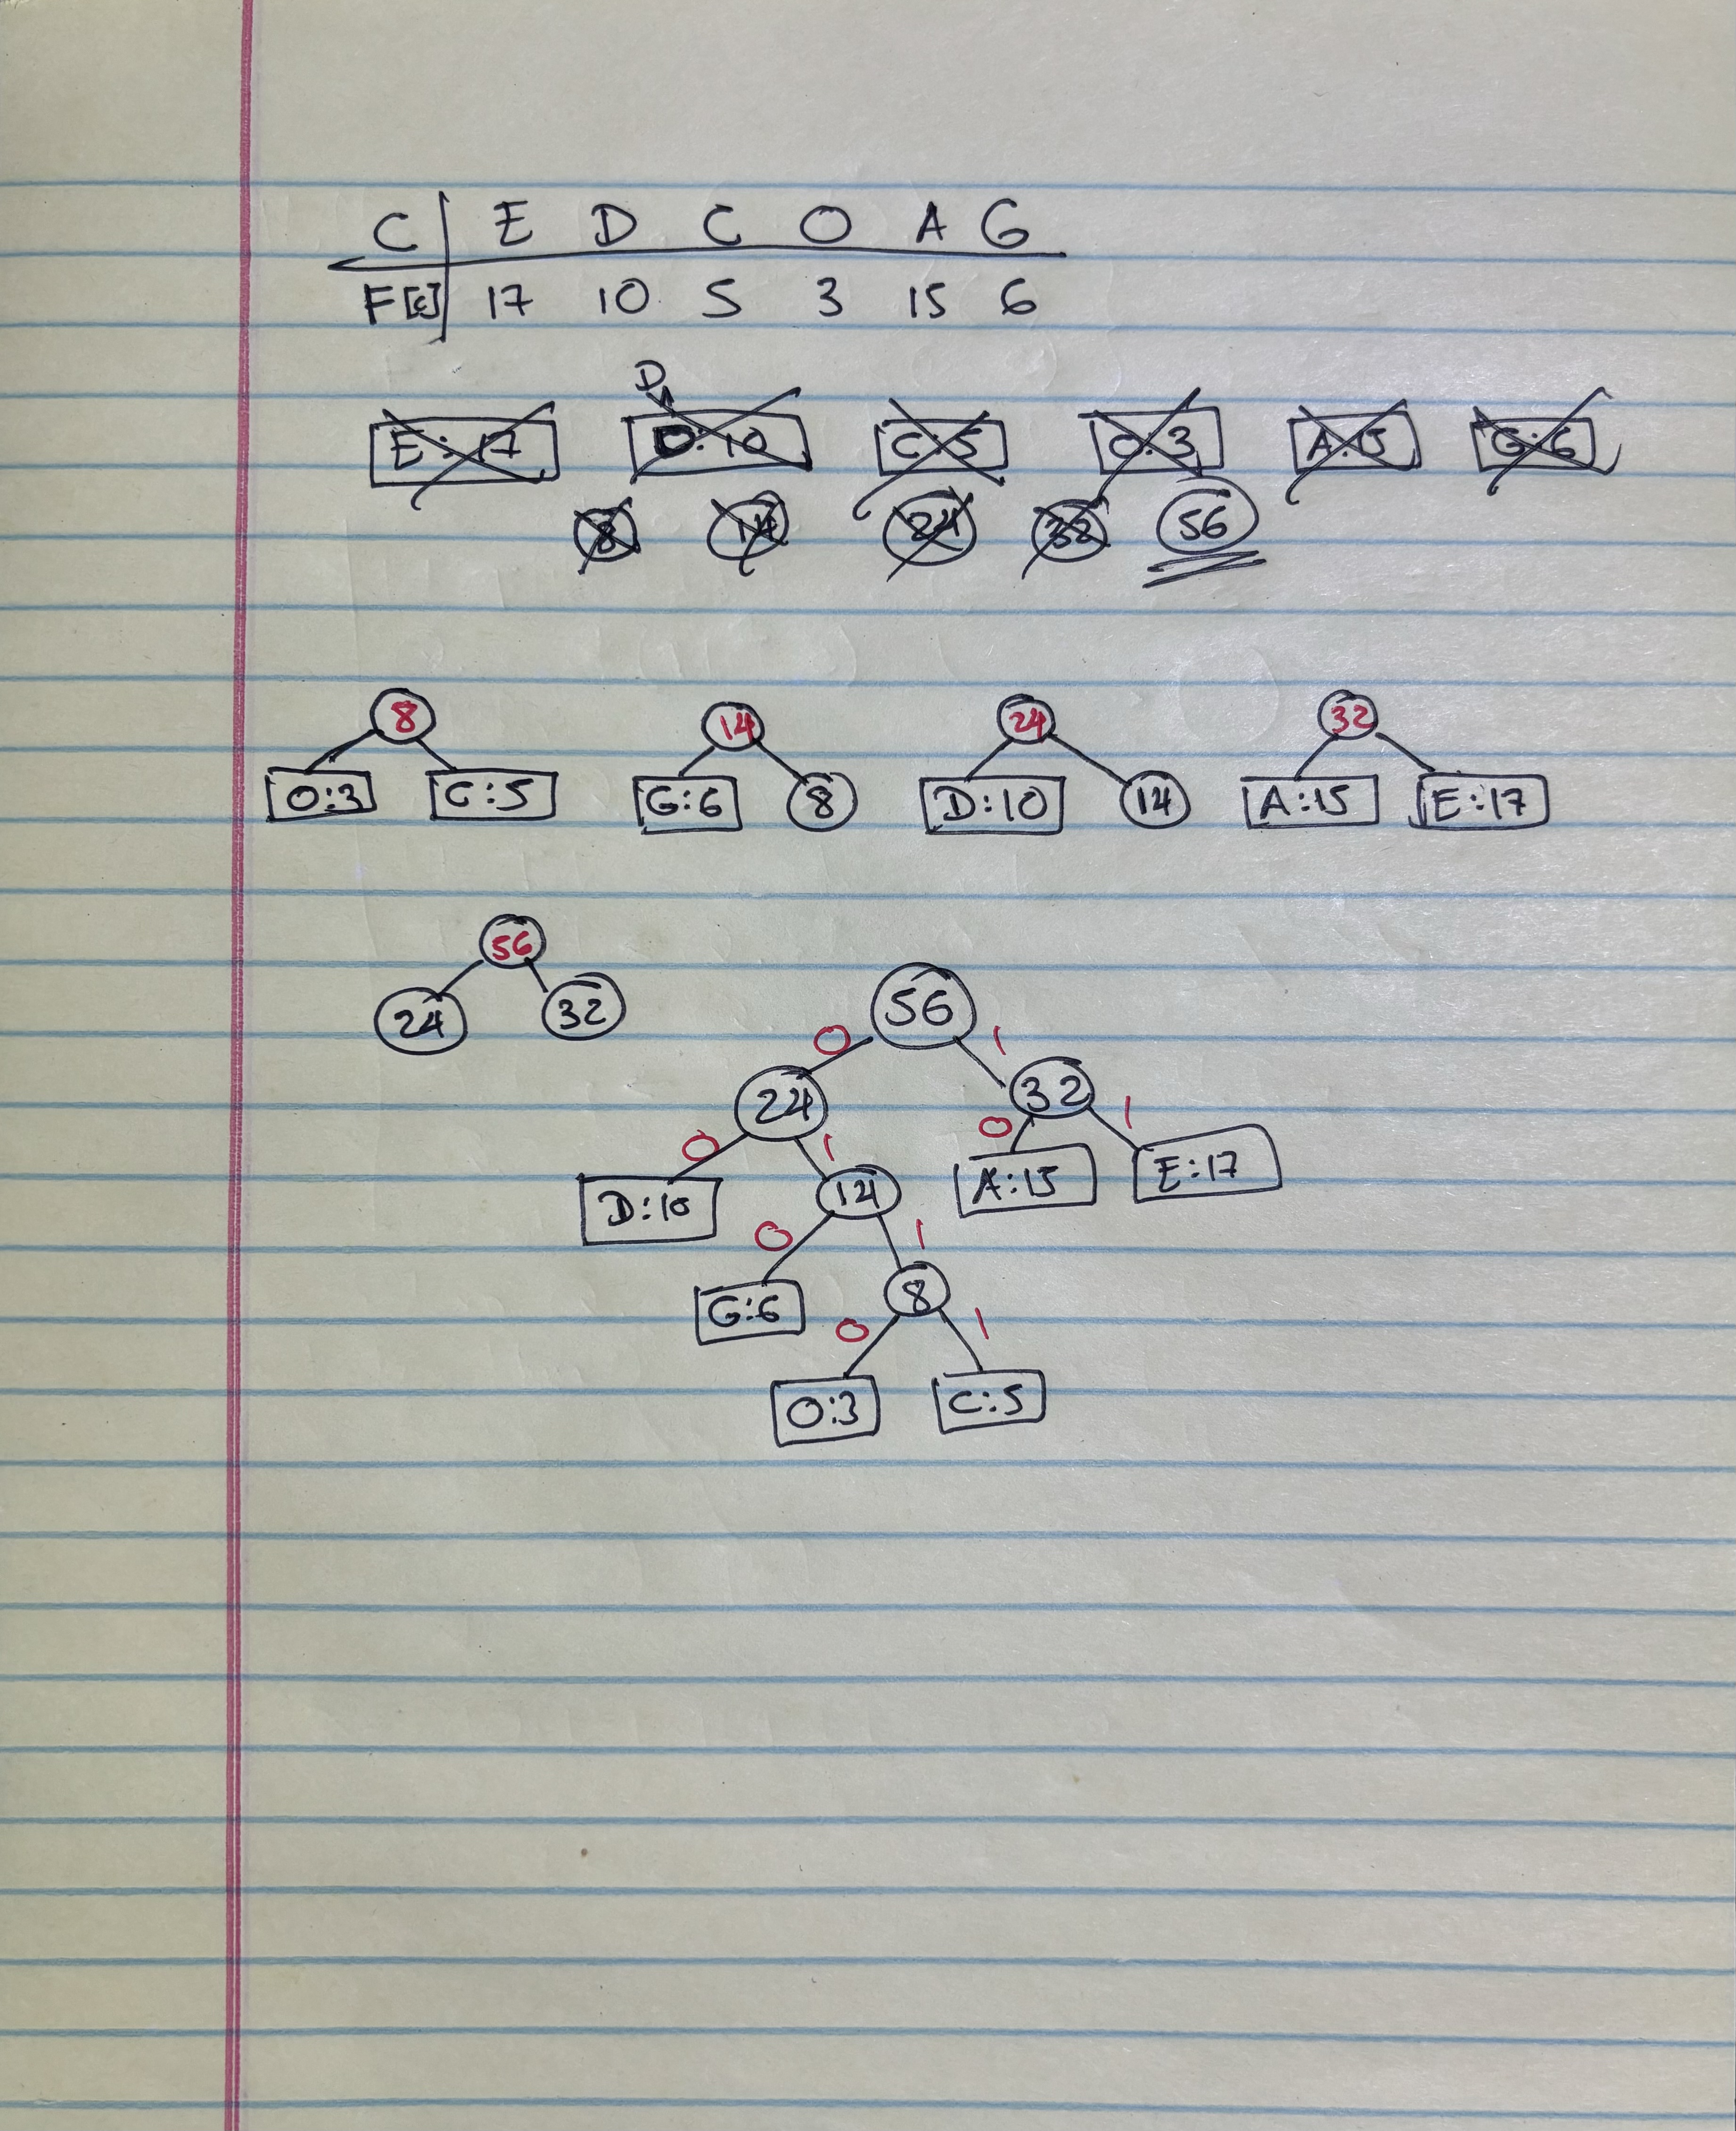 C E D C O A G
F[c] 17 10 5 3 15 6
D
E:17 D:10 C:5 O:3 A:15 G:6
8 14 24 32 56
8 14 24 32
O:3 C:5 G:6 8 D:10 14 A:15 E:17
56
24 32
56
0 1
24 32
0 1 0 1
D:10 14 A:15 E:17
0 1
G:6 8
0 1
O:3 C:5